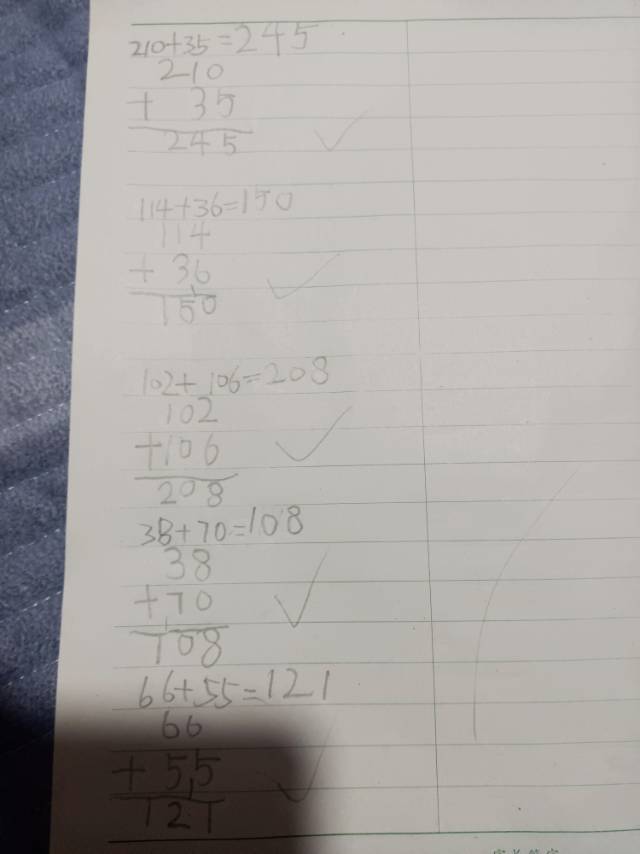 210+35=245
210
+ 35
245
114+36=150
114
+ 36
150
102+106=208
102
+106
208
38+70=108
38
+70
108
66+55=121
66
+ 55
121